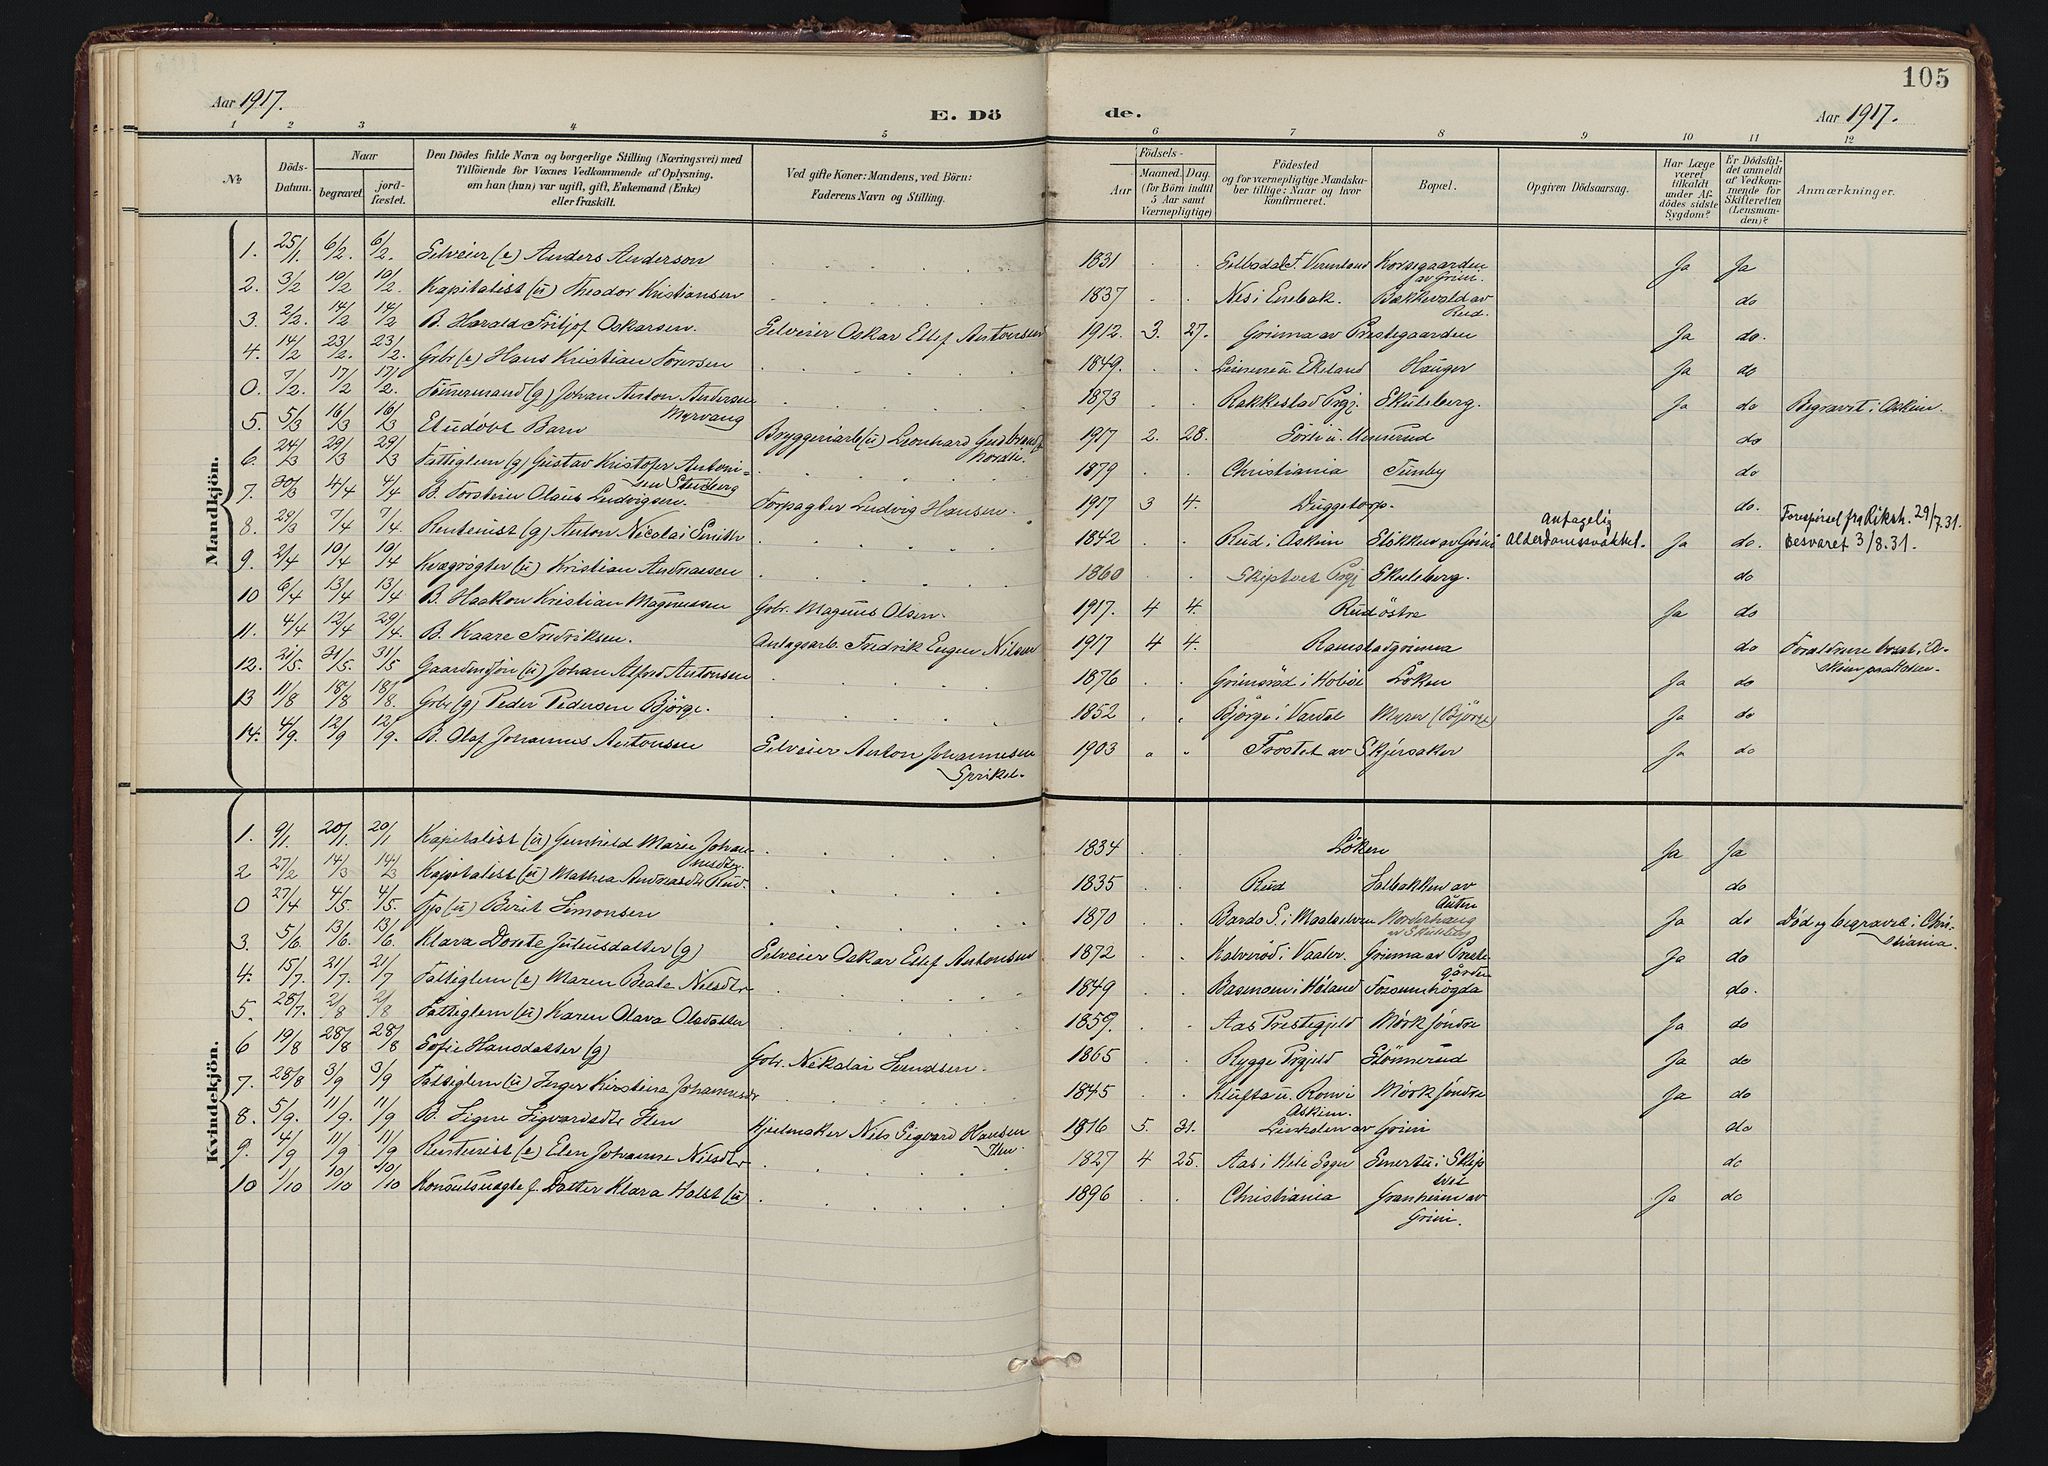 105
Aar 1917.
E. Dö
de.
Aar 1917.
1 2 3 4 5 6 7 8 9 10 11 12
№
Döds-
Datum.
Naar
begravet.
jord-
fæstet.
Den Dödes fulde Navn og borgerlige Stilling (Næringsvei) med
Tilföiende for Voxnes Vedkommende af Oplysning,
om han (hun) var ugift, gift, Enkemand (Enke)
eller fraskilt.
Ved gifte Koner: Mandens, ved Börn:
Faderens Navn og Stilling.
Födsels-
Aar
Maaned. Dag.
(for Börn indtil
5 Aar samt
Værnepligtige)
Födested
og for værnepligtige Mandska-
ber tillige: Naar og hvor
konfirmeret.
Bopæl.
Opgiven Dödsaarsag.
Har Læge
været
tilkaldt
under Af-
dödes sidste
Sygdom?
Er Dödsfal-
det anmeldt
af Vedkom-
mende for
Skifteretten
(Lensman-
den)?
Anmærkninger.
Mandkjön.
1. 25/11 6/2. 6/2. Selveier (e) Anders Anderson 1831 Vermland Korsegaarden Ja Ja
av Grini.
2. 3/2 10/2 10/2. Kapitalist (u) Theodor Kristiansen 1837 Nes i Enebak. Bakkevold av do
Rud.
3. 2/2. 14/2 14/2 B. Harald Fritjof Oskarsen. Selveier Oskar Ellef Antonsen 1912. 3. 27. Grinna av Prestegaarden Ja do.
4. 14/2 23/2. 23/2. Grbr (e) Hans Kristian 1849. Hauger Ja do
0. 7/2. 17/2 17/2. Tömmermand (g) Johan Anton Andersen 1873 Rakkestad Prgj. Skuleberg. Ja do Begravet i Askim.
Myrvang
5. 5/3 16/3 16/3 Etudöbt Barn Bryggeriarb (u) Leonhard 1917 2. 28. do
6. 24/3 29/3 29/3 Fattiglem (g) Gustav Kristofer Antoni- 1879 Christiania Tunby do
sen Stenberg
7. 30/3 4/4 4/4 B. Torstein Olaus Ludvigsen. Forpagter Ludvig Hansen. 1917 3 4. Duggetorp. do.
8. 29/3 7/4 7/4. Rentenist (g) Anton Nicolai Smith 1842 Rud i Askim Stökken av Grini Antagelig
Alderdomssvakhet. Ja do. Forespörsel fra Riksh. 29/7.31.
Besvaret 3/8.31.
9. 2/4 10/4 10/4 Kvægrögter (u) Kristian Andreassen 1860 Skiptvet Prgj Skuleberg. do
10 6/4 13/4 13/4 B. Haakon Kristian Magnussen Gbr. Magnus Olsen. 1917. 4 4. Rud östre Ja do
11. 4/4 12/4 29/4. B. Kaare Fredriksen. Anlagsarb. Fredrik Eugen Nilsen 1917 4 4. Ramstadgrinna do Foreldrene bosat i A-
skim
12. 21/5. 31/5. 31/5 Gaardmdsön (u) Johan Alfred Antonsen 1876 Grimsröd i Hoböl Löken Ja do
13 11/8 18/8 18/8. Grbr (g) Peder Pedersen Björge. 1852 Björge i Vardal Myrer (Björge) Ja do
14. 4/9. 12/9 12/9. B. Olaf Johannes Antonsen Selveier Anton Johannesen 1903 Toostet av Skjersaker Ja do
Sprikel.
Kvindekjön.
1. 9/1. 20/1 20/1 Kapitalist (u) Gunhild Marie Johan- 1834 Löken Ja Ja
nesdtr.
2 27/2 14/3 14/3 Kapitalist (u) Mathea Andreasdtr Rud. 1835 Rud Solbakken av do
Auten
0 27/4 4/5. 4/5. Tjp (u) Berit Simonsen 1870 Bardo S. i Maalselven Norderhaug Ja do Död og begravet i Chri-
av Skuleberg
stiania.
3. 5/6 13/6. 13/6. Klara Dorete Juliusdatter (g) Selveier Oskar Ellef Antonsen 1872 Kalveröd i Vaaler. Grinna av Preste- Ja do
gården
4. 15/7. 21/7. 21/7 Fattiglem (e) Maren Beate Nilsdtr 1849 i Höland Tosumhögda do.
5. 28/7. 2/8 2/8 Fattiglem (u) Karen Olava Olsdatter 1859. Aas Prestegjeld Mörk söndre Ja do
6 19/8 28/8 28/8 Sofie Hansdatter (g) Gbr. Nikolai Svendsen. 1865 Rygge Prgjeld Stömnerud Ja do
7. 28/8 3/9 3/9 Fattiglem (u) Inger Kirstine Johannesdtr 1845 Klufta u. Rom i Mörk söndre Ja do
Askim.
8. 5/9. 11/9. 11/9 B. Signe Sigvardsdtr Hen Hjulmaker Nils Sigvard Hansen 1916 5. 31. Linholen av Grini do
Hen.
9. 4/9 11/9 11/9 Rentenist (e) Elen Johanne Nilsdtr 1827 4 25. Aas i Heli Sogn i Skip- do
tvet
10 1/10 10/10 10/10 Datter Klara Holst (u) 1896 Christiania Granheim av Ja do
Grini.